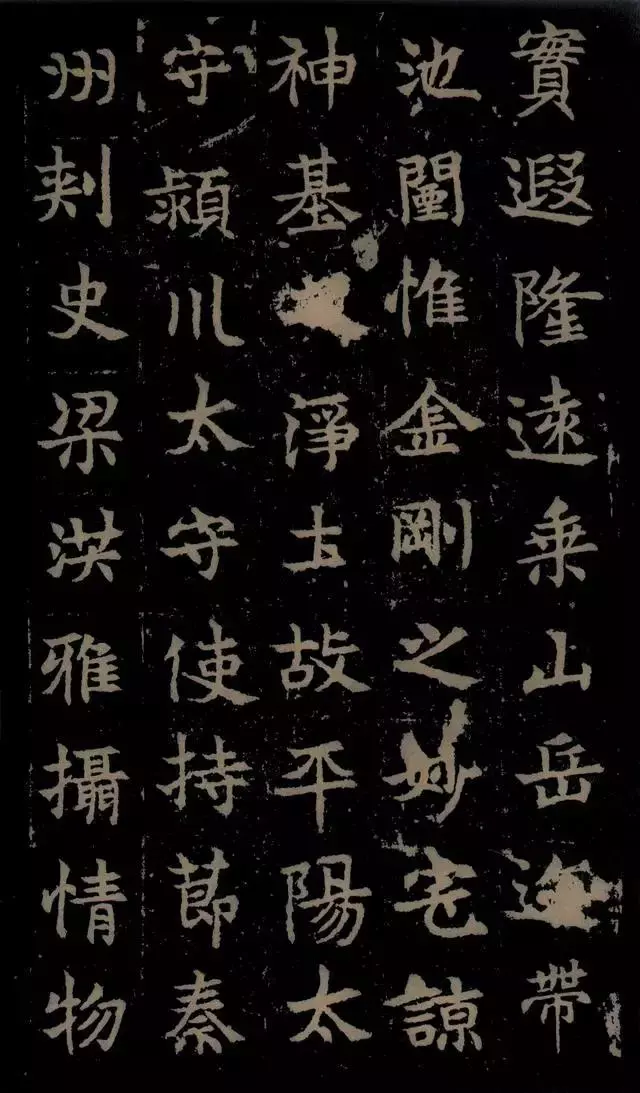 實遐隆遠乗山岳帶
池閫惟金剛之妙宅諒
神基淨土故平陽太
守潁川太守使持節秦
州刺史梁洪雅攝情物